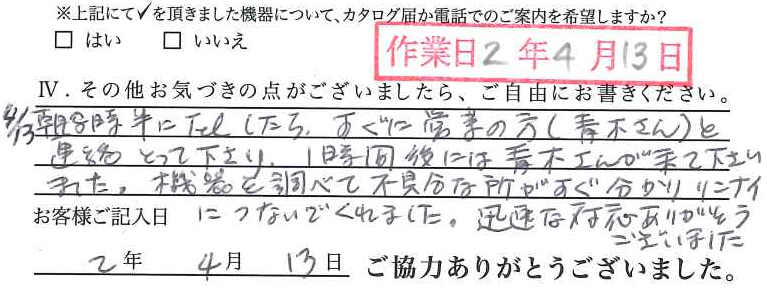 ※上記にて✓を頂きました機器について、カタログ届か電話でのご案内を希望しますか?
□ はい □ いいえ
作業日2年4月13日
Ⅳ.その他お気づきの点がございましたら、ご自由にお書きください。
4/13 朝8時半にTelしたら、すぐに営業の方(青木さん)と
連絡とって下さり、1時間後には青木さんが来て下さい
ました。機器を調べて不具合な所がすぐ分かりリンナイ
お客様ご記入日 につないでくれました。迅速な対応ありがとう
ございました
2年 4月 13日 ご協力ありがとうございました。